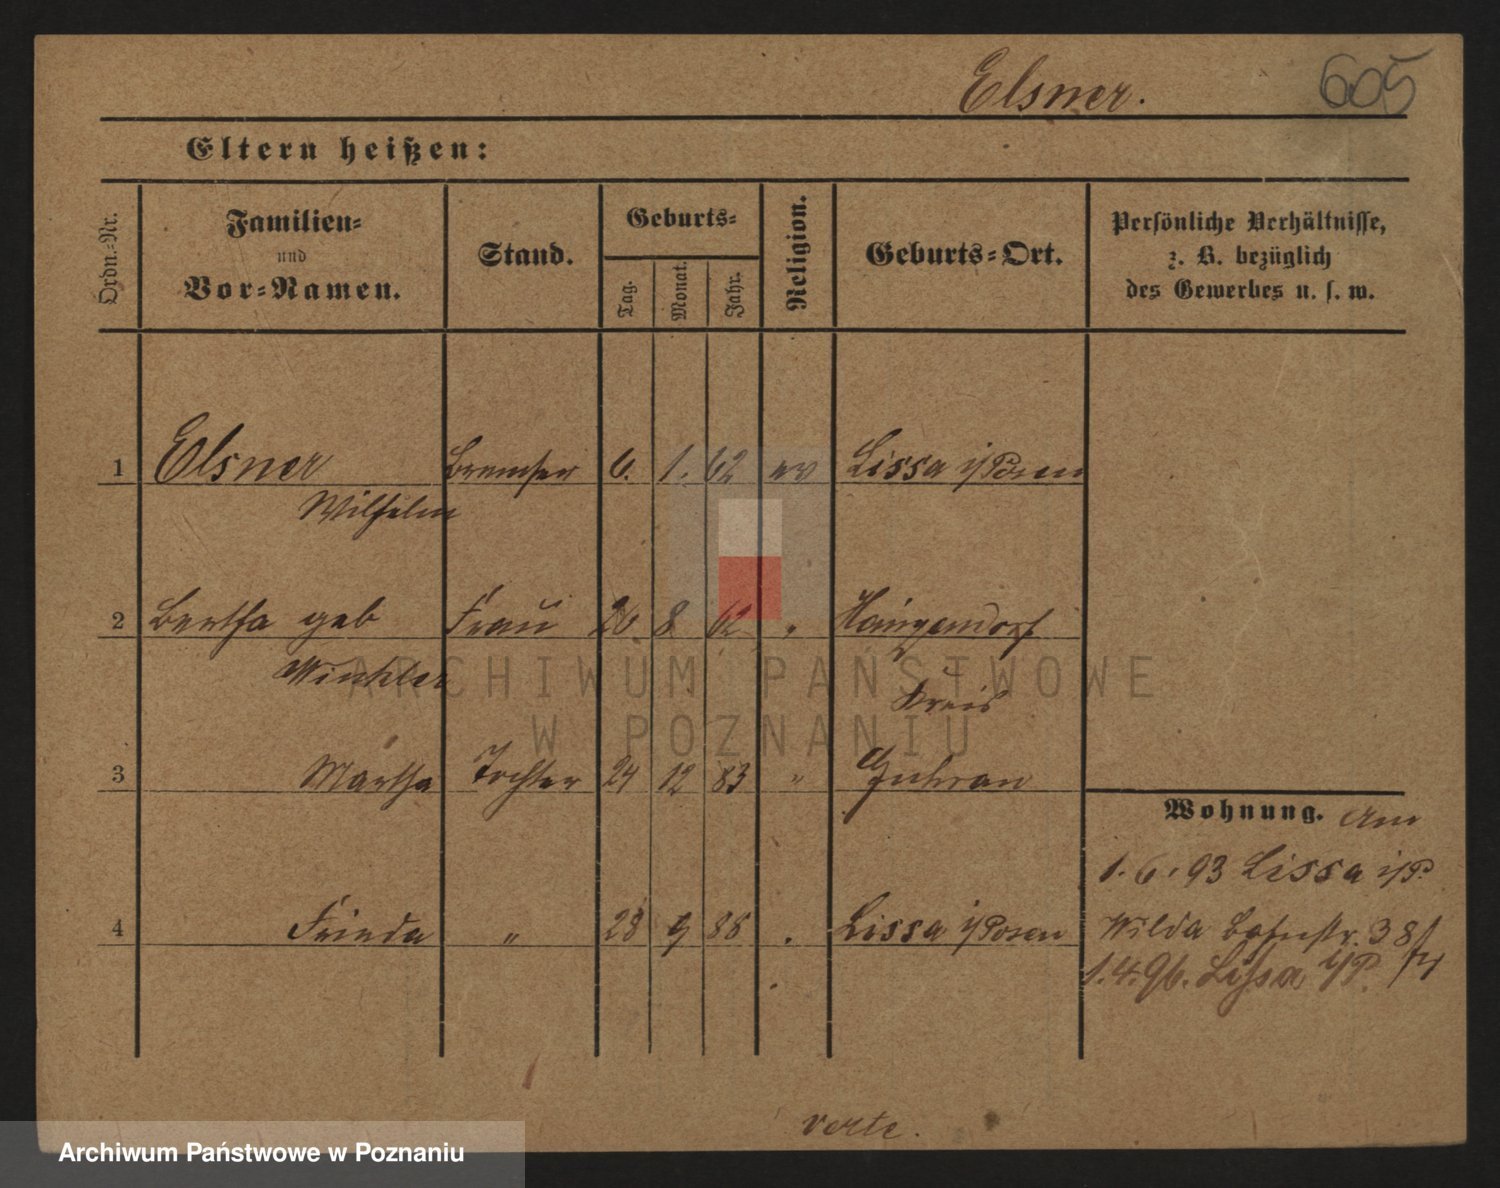 Elsner. 605
Eltern heißen:
Ordn.-Nr.
Familien-
und
Vor-Namen.
Stand.
Geburts-
Tag.
Monat.
Jahr.
Religion.
Geburts-Ort.
Persönliche Verhältnisse,
z. B. bezüglich
des Gewerbes u. s. w.
1 Elsner Bremser 6. 1. 62 ev Lissa i/Posen
Wilhelm
2 Bertha geb Frau 26. 8 62 "
Winkler Kreis
3 Martha Tochter 24 12 83 " Guhrau
Wohnung. Am
1. 6. 93 Lissa i/P.
4 Frieda " 28 9 88 " Lissa i/Posen
Wilda Bahnstr. 38
1.4.96. Lissa i/P.
verte.
ARCHIWUM PAŃSTWOWE
W POZNANIU
Archiwum Państwowe w Poznaniu